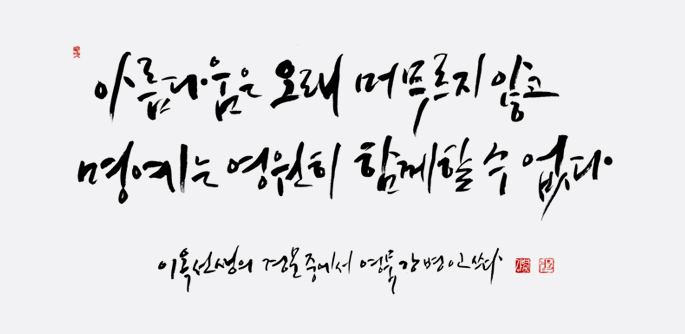 아름다움은 오래 머무르지 않고
명예는 영원히 함께할 수 없다.
이옥선생의 경문중에서 영묵강병인쓰다